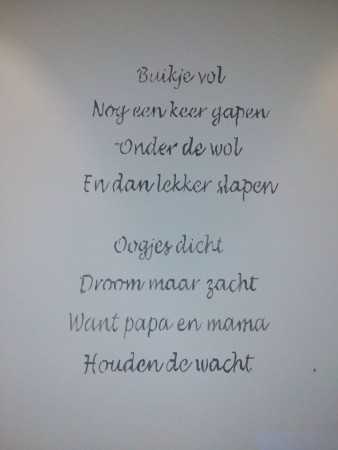 Buikje vol
Nog een keer gapen
Onder de wol
En dan lekker slapen
Oogjes dicht
Droom maar zacht
Want papa en mama
Houden de wacht